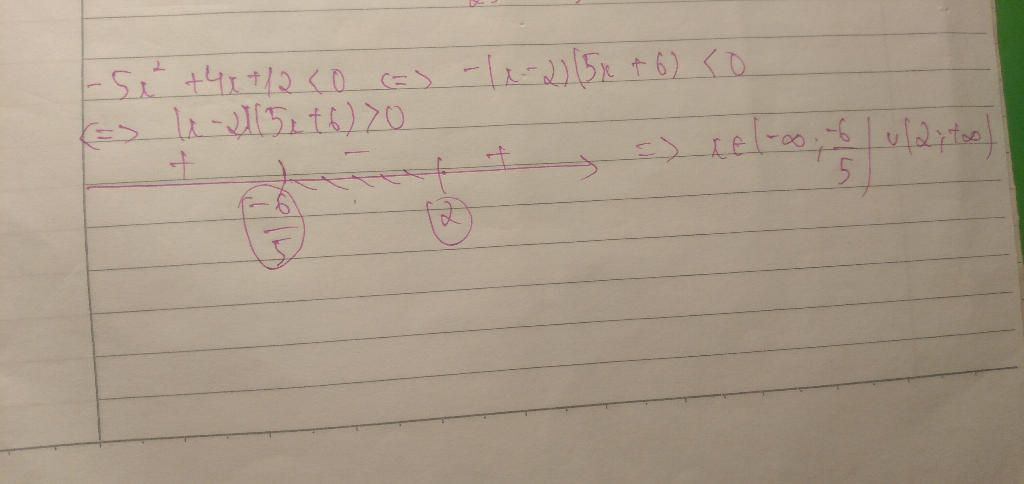 -5x² +4x+12<0 <=> -(x-2)(5x+6) <0
<=> (x-2)(5x+6)>0
+ - + => x∈(-∞; -6/5) ∪(2;+∞)
-6/5 2